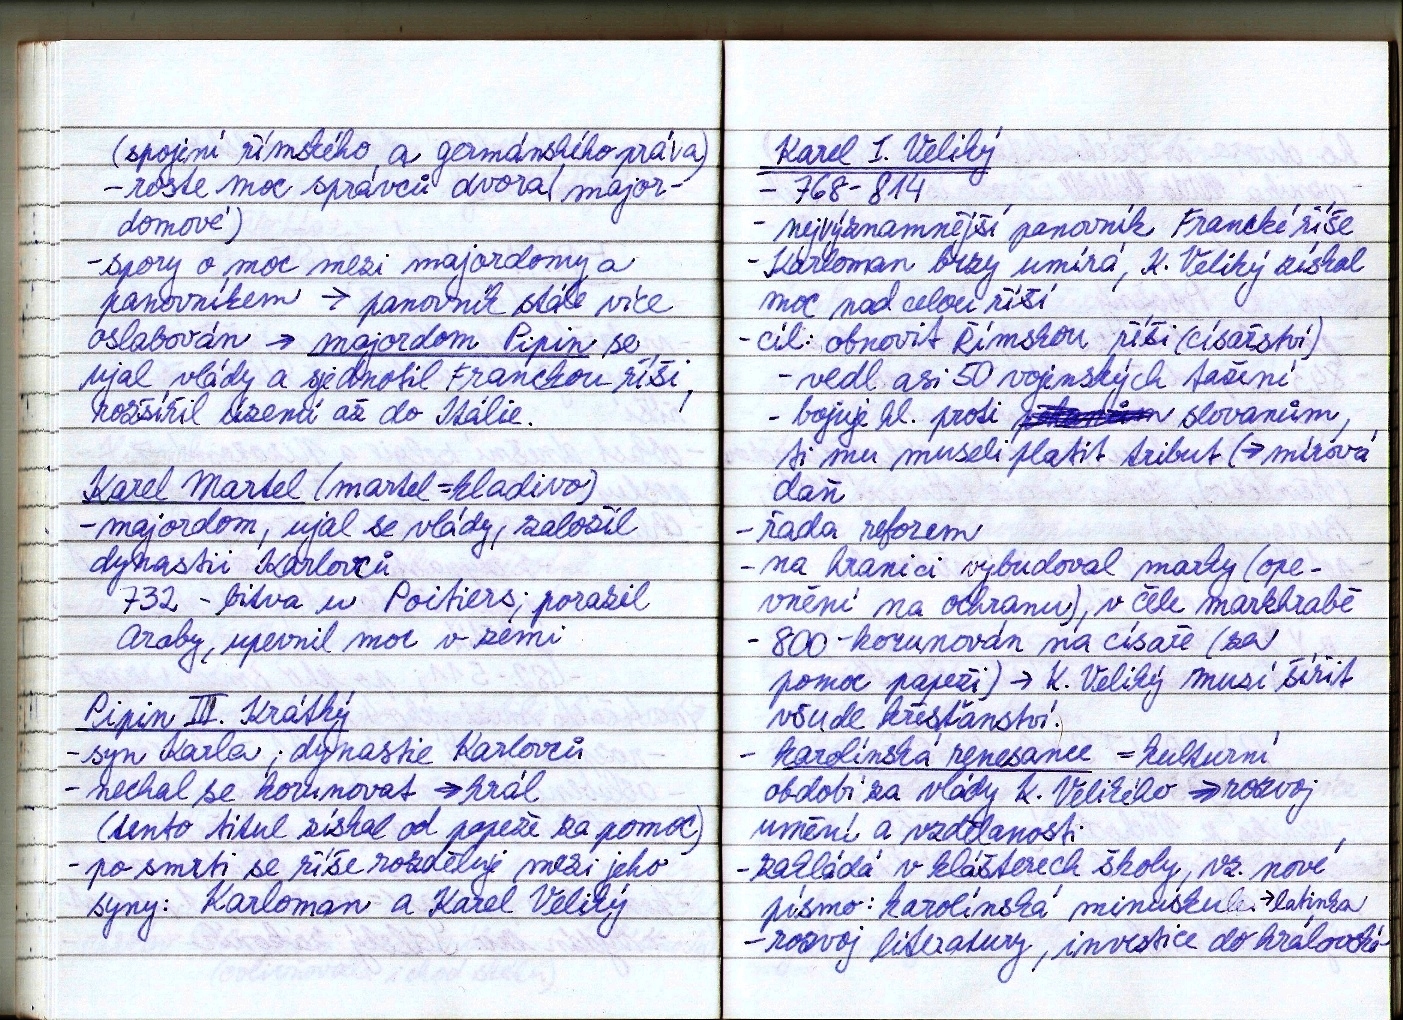 (spojení římského a germánského práva)
- roste moc správců dvora (major-
domové)
- spory o moc mezi majordomy a
panovníkem → panovník stále více
oslabován → majordom Pipin se
ujal vlády a sjednotil Franckou říši,
rozšířil území až do Itálie.
Karel Martel (martel = kladivo)
- majordom, ujal se vlády, založil
dynastii Karlovců
732 - bitva u Poitiers; porazil
Araby, upevnil moc v zemi
Pipin III. Krátký
- syn Karla; dynastie Karlovců
- nechal se korunovat → král
(tento titul získal od papeže za pomoc)
- po smrti se říše rozděluje mezi jeho
syny: Karloman a Karel Veliký
Karel I. Veliký
- 768 - 814
- nejvýznamnější panovník Francké říše
- Karloman brzy umírá, K. Veliký získal
moc nad celou říší
- cíl: obnovit Římskou říši (císařství)
- vedl asi 50 vojenských tažení
- bojuje hl. proti slovanům,
ti mu museli platit tribut (→ mírová
daň
- řada reforem
- na hranici vybudoval marky (ope-
vnění na ochranu), v čele markhrabě
- 800 - korunován na císaře (za
pomoc papeži) → K. Veliký musí šířit
všude křesťanství.
- karolínská renesance = kulturní
období za vlády K. Velikého → rozvoj
umění a vzdělanosti
- zakládá v klášterech školy, vz. nové
písmo: karolínská minuskule → latinka
- rozvoj literatury, investice do královské-